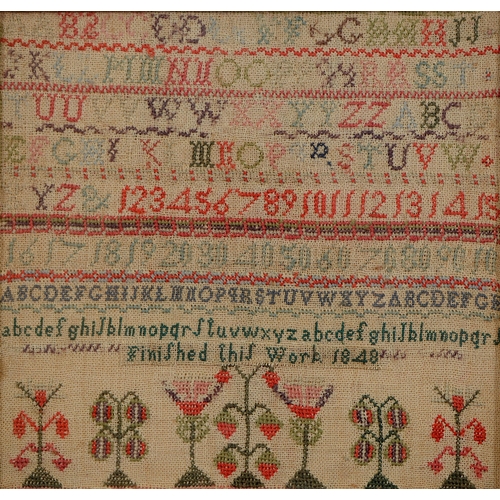 B B C C D D G G H H I I
K L M M N N O O R R S S T
U U W W X X Y Y Z Z A B C
E F G H I K M N O P R S T U V W
Y Z & 1 2 3 4 5 6 7 8 9 10 11 12 13 14 15
16 17 18 19 20 30 40 50 60 70 80 90 10
ABCDEFGHIJKLMNOPQRSTUVWXYZABCDEFG
abcdefghiſklmnopqrſtuvwxyzabcdefghiſklmnopqrſ
Finiſhed thiſ Work 1848